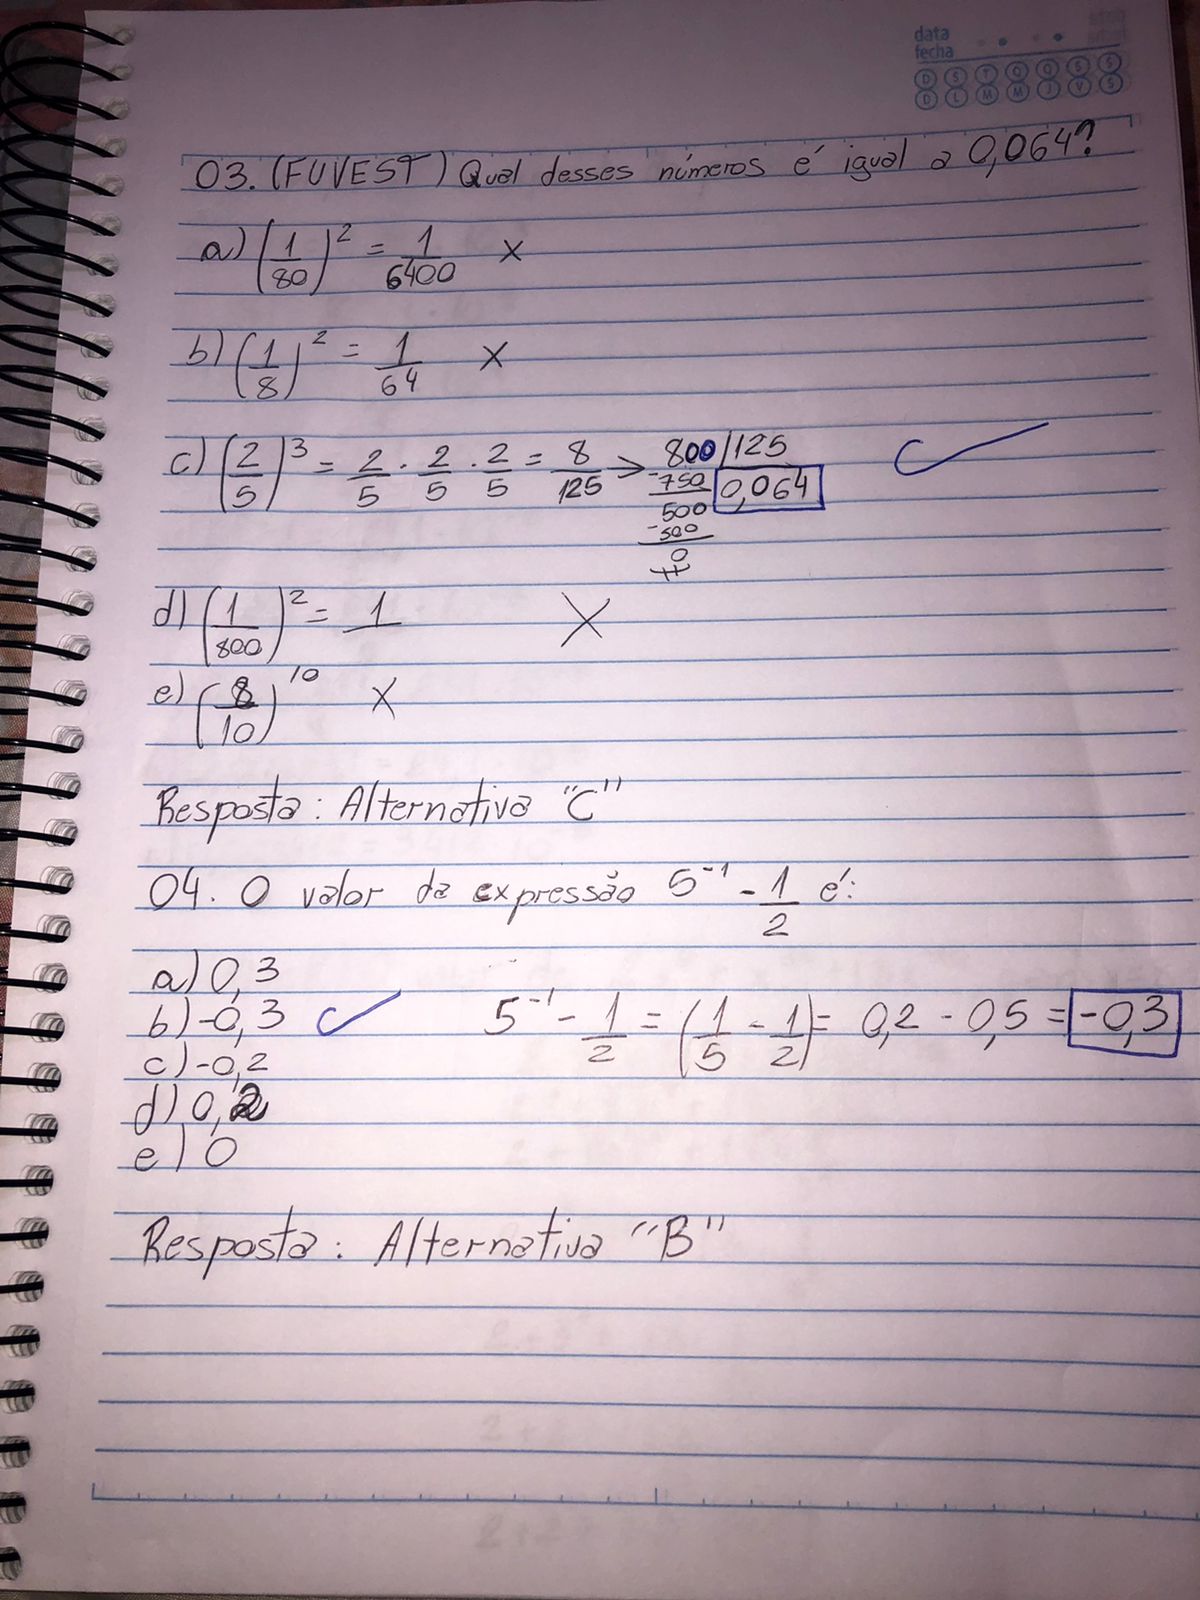 data
fecha
D S T Q Q S S
D L M M J V S
03. (FUVEST) Qual desses números é igual a 0,064?
a) (1/80)² = 1/6400 X
b) (1/8)² = 1/64 X
c) (2/5)³ = 2/5 · 2/5 · 2/5 = 8/125 → 800 | 125
-750 0,064
500
-500
0
d) (1/800)² = 1 X
e) (8/10)¹⁰ X
Resposta: Alternativa "C"
04. O valor da expressão 5⁻¹ - 1/2 é:
a) 0,3
b) -0,3 5⁻¹ - 1/2 = (1/5 - 1/2) = 0,2 - 0,5 = -0,3
c) -0,2
d) 0,2
e) 0
Resposta: Alternativa "B"